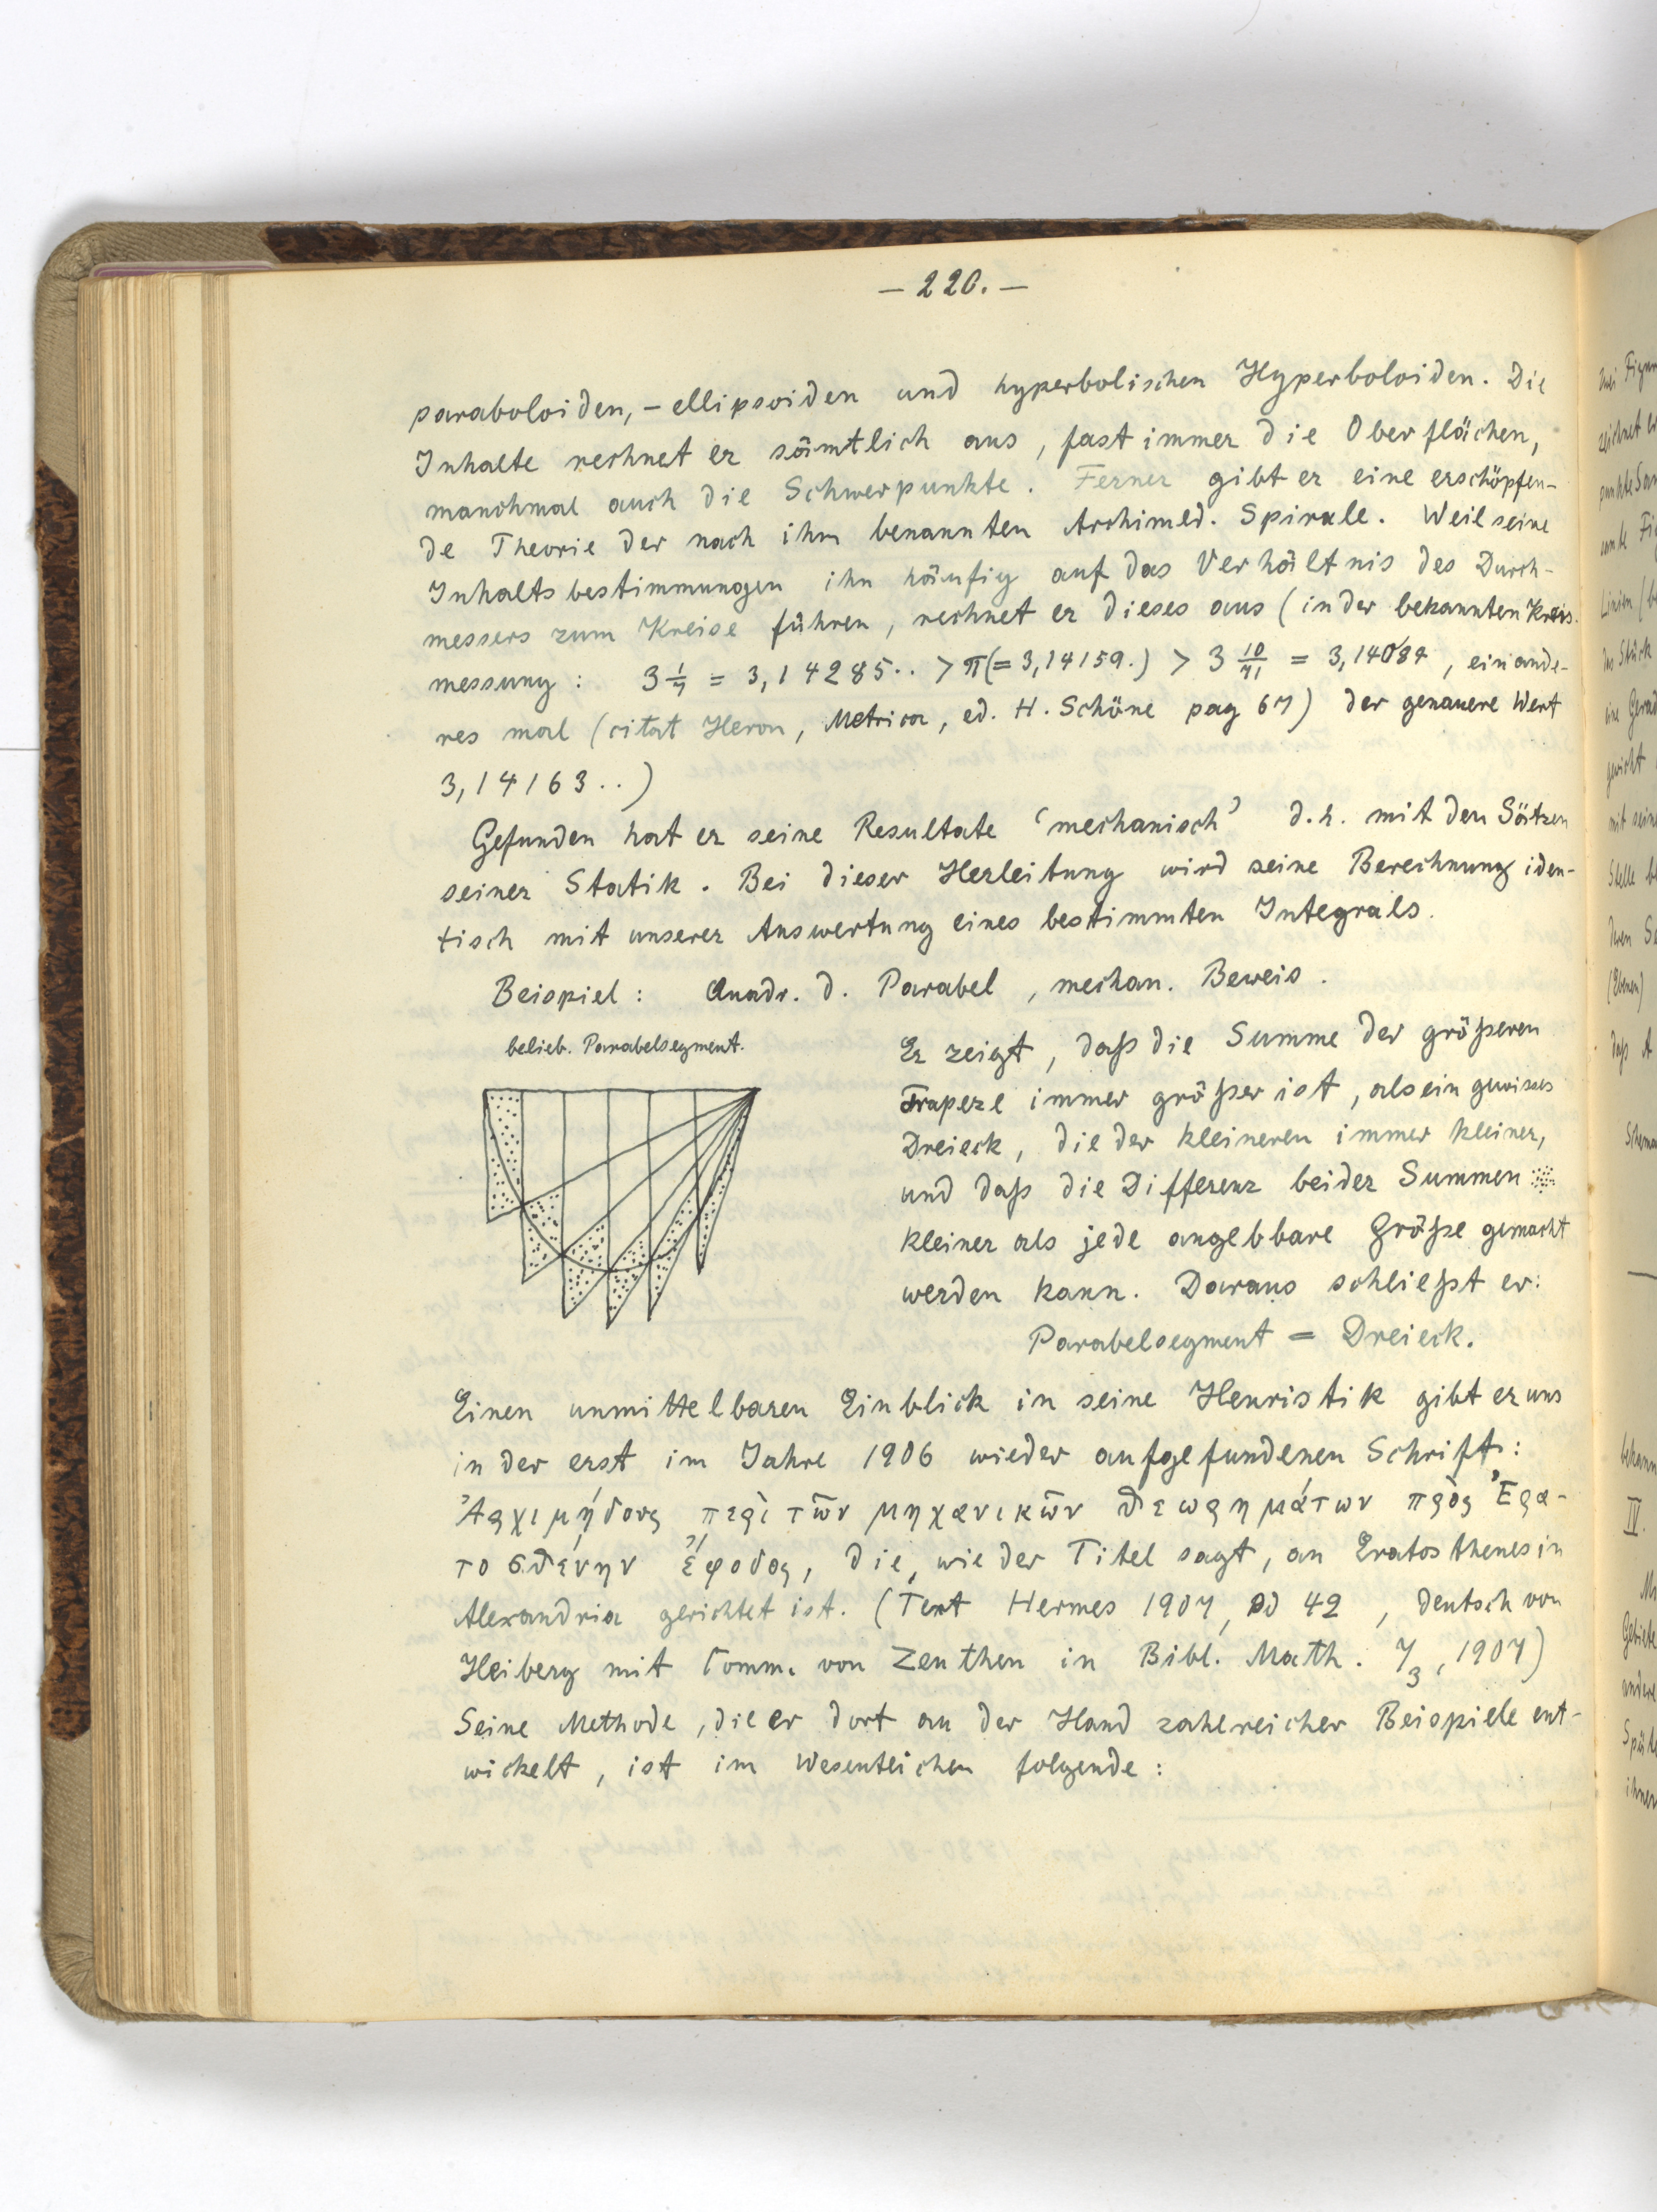 — 220. —
paraboloiden, – ellipsoiden und hyperbolischen Hyperboloiden. Die
Inhalte rechnet er sämtlich aus, fast immer die Oberflächen,
manchmal auch die Schwerpunkte. Ferner gibt er eine erschöpfen-
de Theorie der nach ihm benannten Archimed. Spirale. Weil seine
Inhaltsbestimmungen ihn häufig auf das Verhältnis des Durch-
messers zum Kreise führen, rechnet er dieses aus (in der bekannten Kreis-
messung: 3 1/7 = 3,14285.. > π (= 3,14159.) > 3 10/71 = 3,14084, ein ande-
res mal (citat Heron, Metrica, ed. H. Schöne pag 67) der genauere Wert
3,14163..)
Gefunden hat er seine Resultate ‘mechanisch’ d.h. mit den Sätzen
seiner Statik. Bei dieser Herleitung wird seine Berechnung iden-
tisch mit unserer Auswertung eines bestimmten Integrals.
Beispiel: Quadr. d. Parabel, mechan. Beweis.
belieb. Parabelsegment.
Er zeigt, daß die Summe der größeren
Trapeze immer größer ist, als ein gewisses
Dreieck, die der kleineren immer kleiner,
und daß die Differenz beider Summen
kleiner als jede angebbare Größe gemacht
werden kann. Daraus schließt er:
Parabelsegment = Dreieck.
Einen unmittelbaren Einblick in seine Heuristik gibt er uns
in der erst im Jahre 1906 wieder aufgefundenen Schrift:
Ἀρχιμήδους περὶ τῶν μηχανικῶν θεωρημάτων πρὸς Ἐρα-
τοσθένην ἔφοδος, die, wie der Titel sagt, an Eratosthenes in
Alexandria gerichtet ist. (Text Hermes 1907, Bd 42, deutsch von
Heiberg mit Comm. von Zeuthen in Bibl. Math. 7₃, 1907)
Seine Methode, die er dort an der Hand zahlreicher Beispiele ent-
wickelt, ist im Wesentlichen folgende: